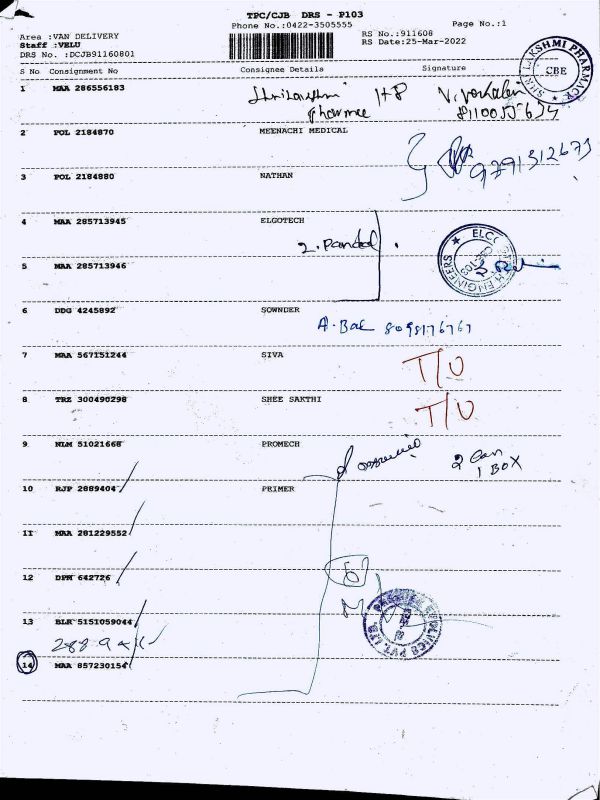 TPC/CJB DRS - P103
Phone No.:0422-3505555
Page No.:1
Area :VAN DELIVERY
RS No.:911608
Staff :VELU
RS Date:25-Mar-2022
DRS No. :DCJB91160801
S No Consignment No Consignee Details Signature
SHRI LAKSHMI PHARMACY CBE
1 MAA 286556183
2 POL 2184870 MEENACHI MEDICAL
9791312673
3 POL 2184880 NATHAN
4 MAA 285713945 ELGOTECH
5 MAA 285713946
6 DDG 4245892 SOWNDER
A. Bal 8098176767
7 MAA 567151244 SIVA T/U
8 TRZ 300490298 SHEE SAKTHI T/U
9 NLM 51021668 PROMECH
2 Can
1 BOX
10 RJP 2889404 PRIMER
11 MAA 281229552
12 DPM 642726
13 BLR 5151059044
14 MAA 857230154